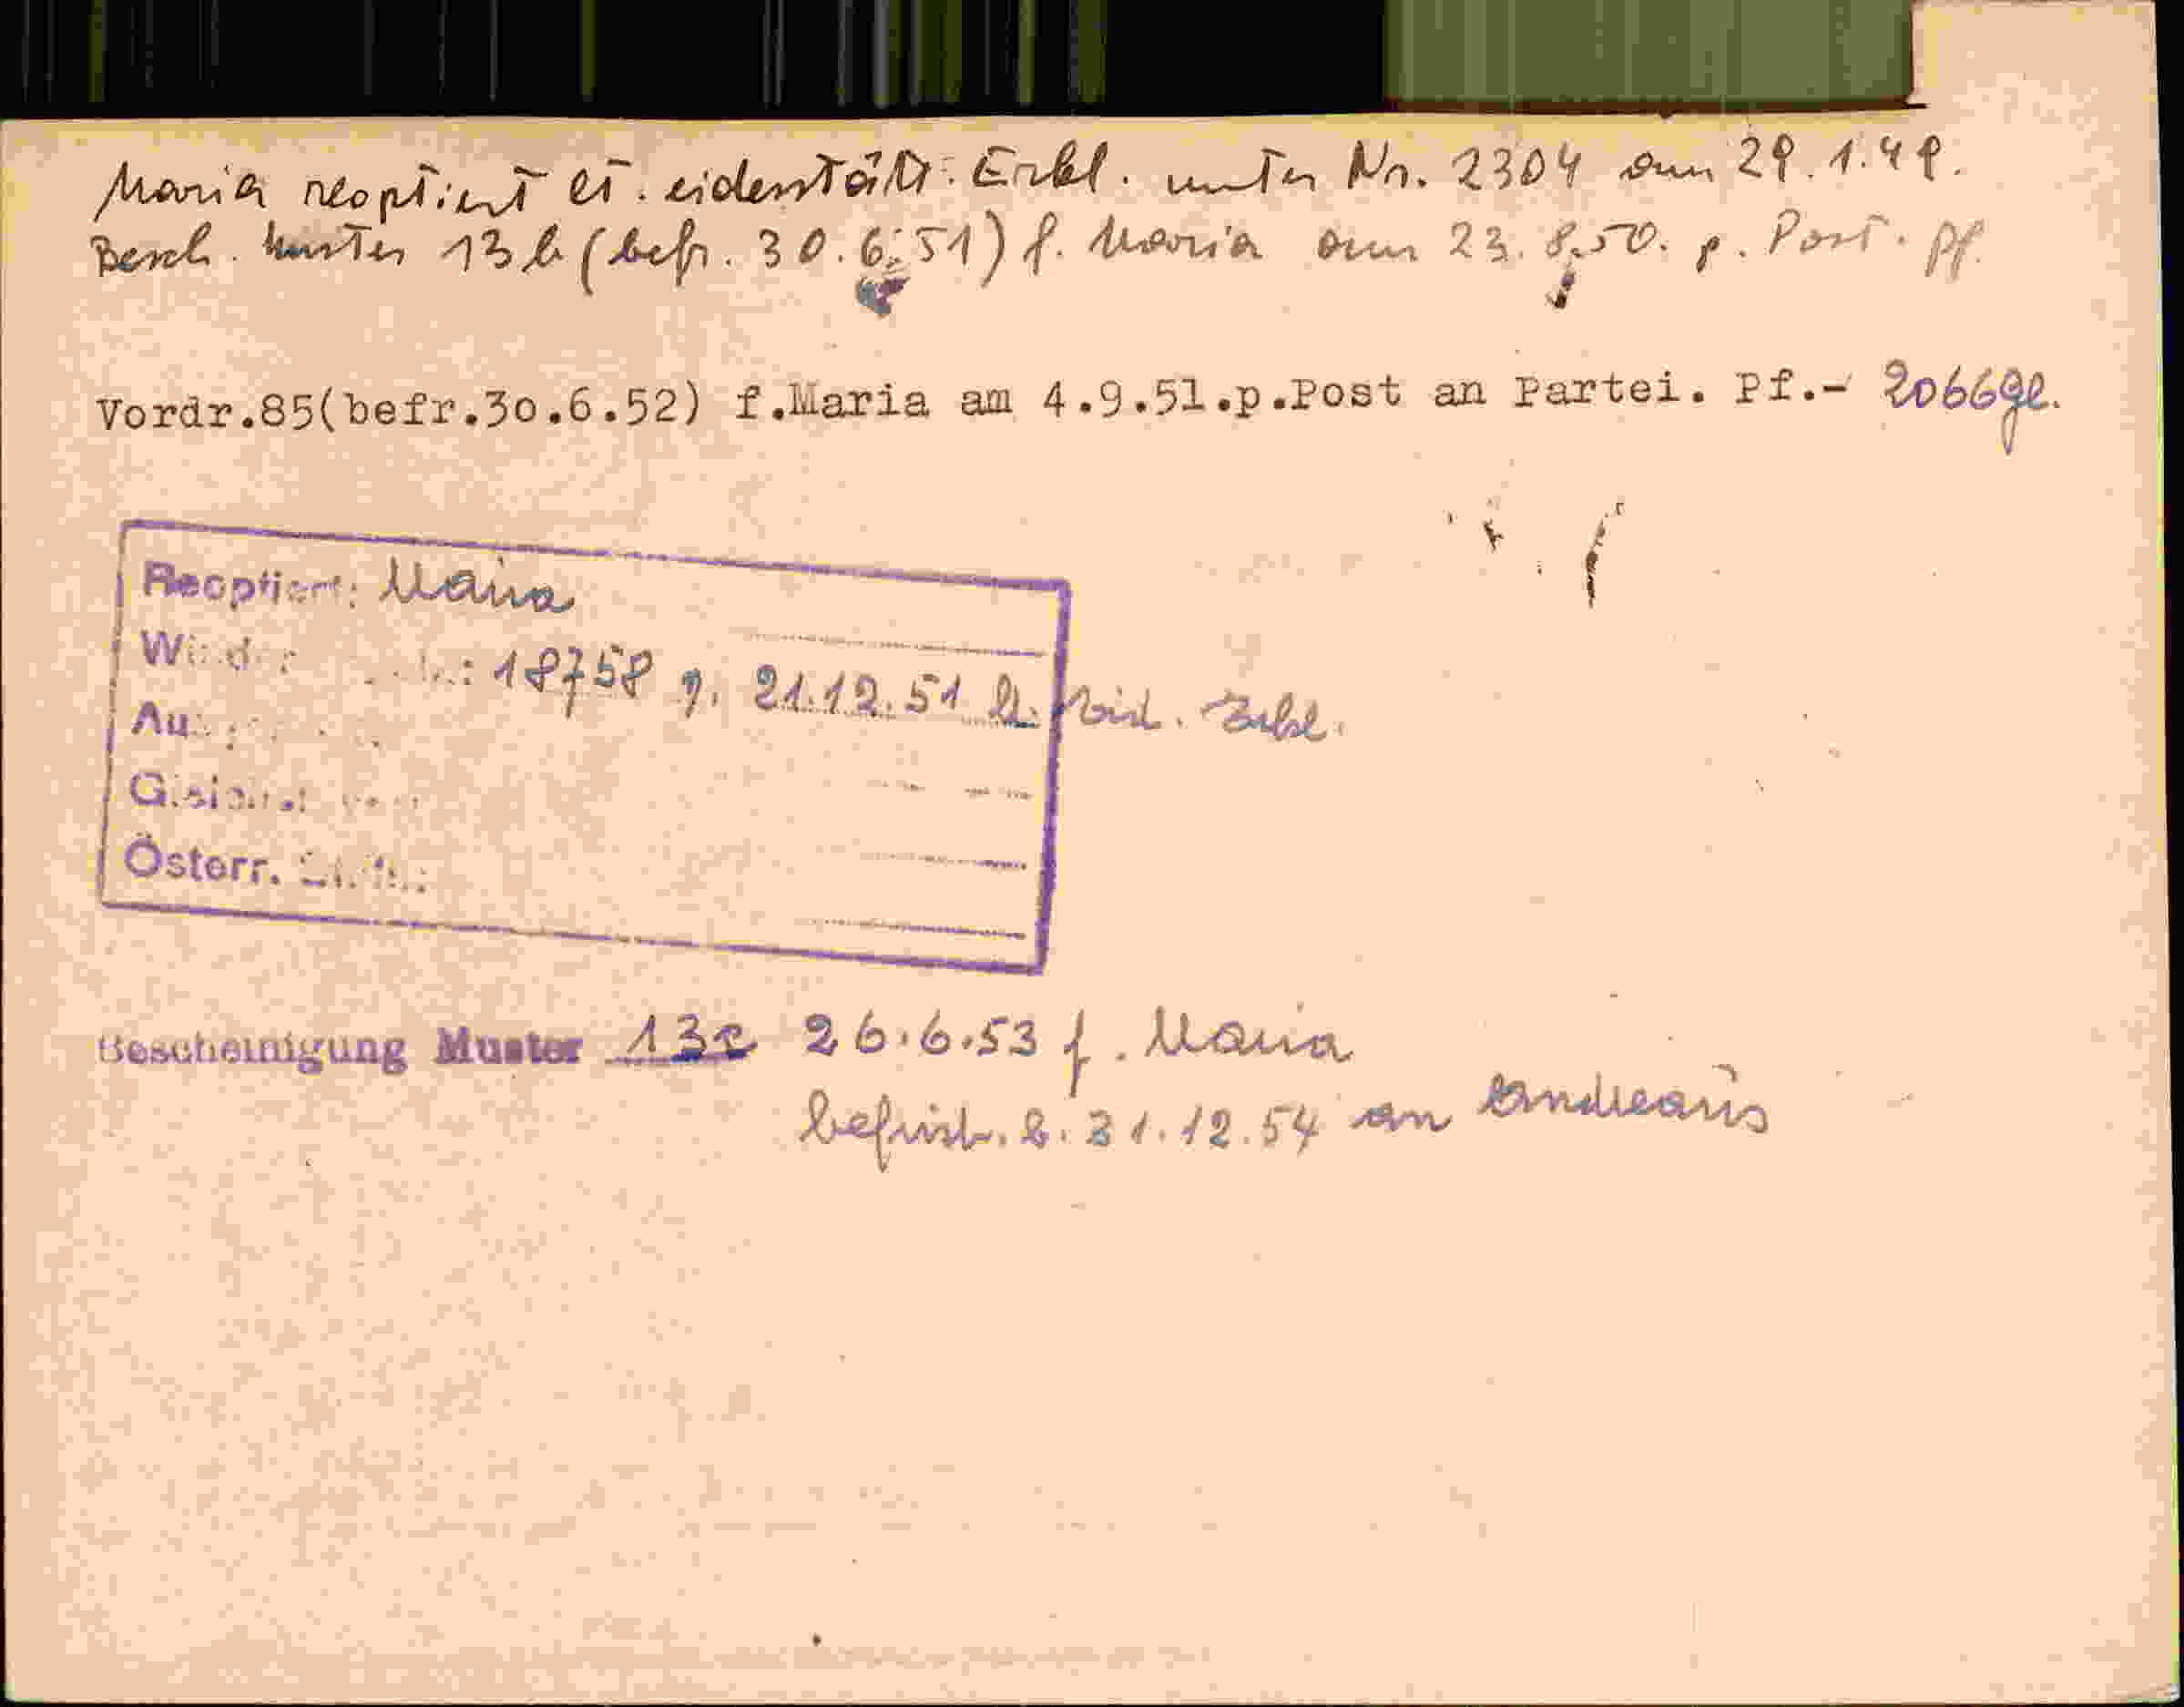 Maria reoptiert lt. eidesstattl. Erkl. unter Nr. 2304 am 29.1.49.
Besch. Muster 13 b (befr. 30.6.51) f. Maria am 23.8.50. p. Post. Pf.
Vordr.85(befr.30.6.52) f.Maria am 4.9.51.p.Post an Partei. Pf.- 2066
Reoptiert: Maria
18758 v. 21.12.51 lt. Eid. Erkl.
Österr.
Bescheinigung Muster 13c 26.6.53 f. Maria
befrist. b. 31.12.54 an